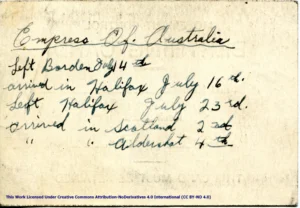 Empress Of. Australia
Left Borden July 14th
arrived in Halifax July 16th.
Left Halifax July 23rd.
arrived in Scotland 2nd
" " Aldershot 4th
This Work Licensed Under Creative Commons Attribution-NoDerivatives 4.0 International (CC BY-ND 4.0)